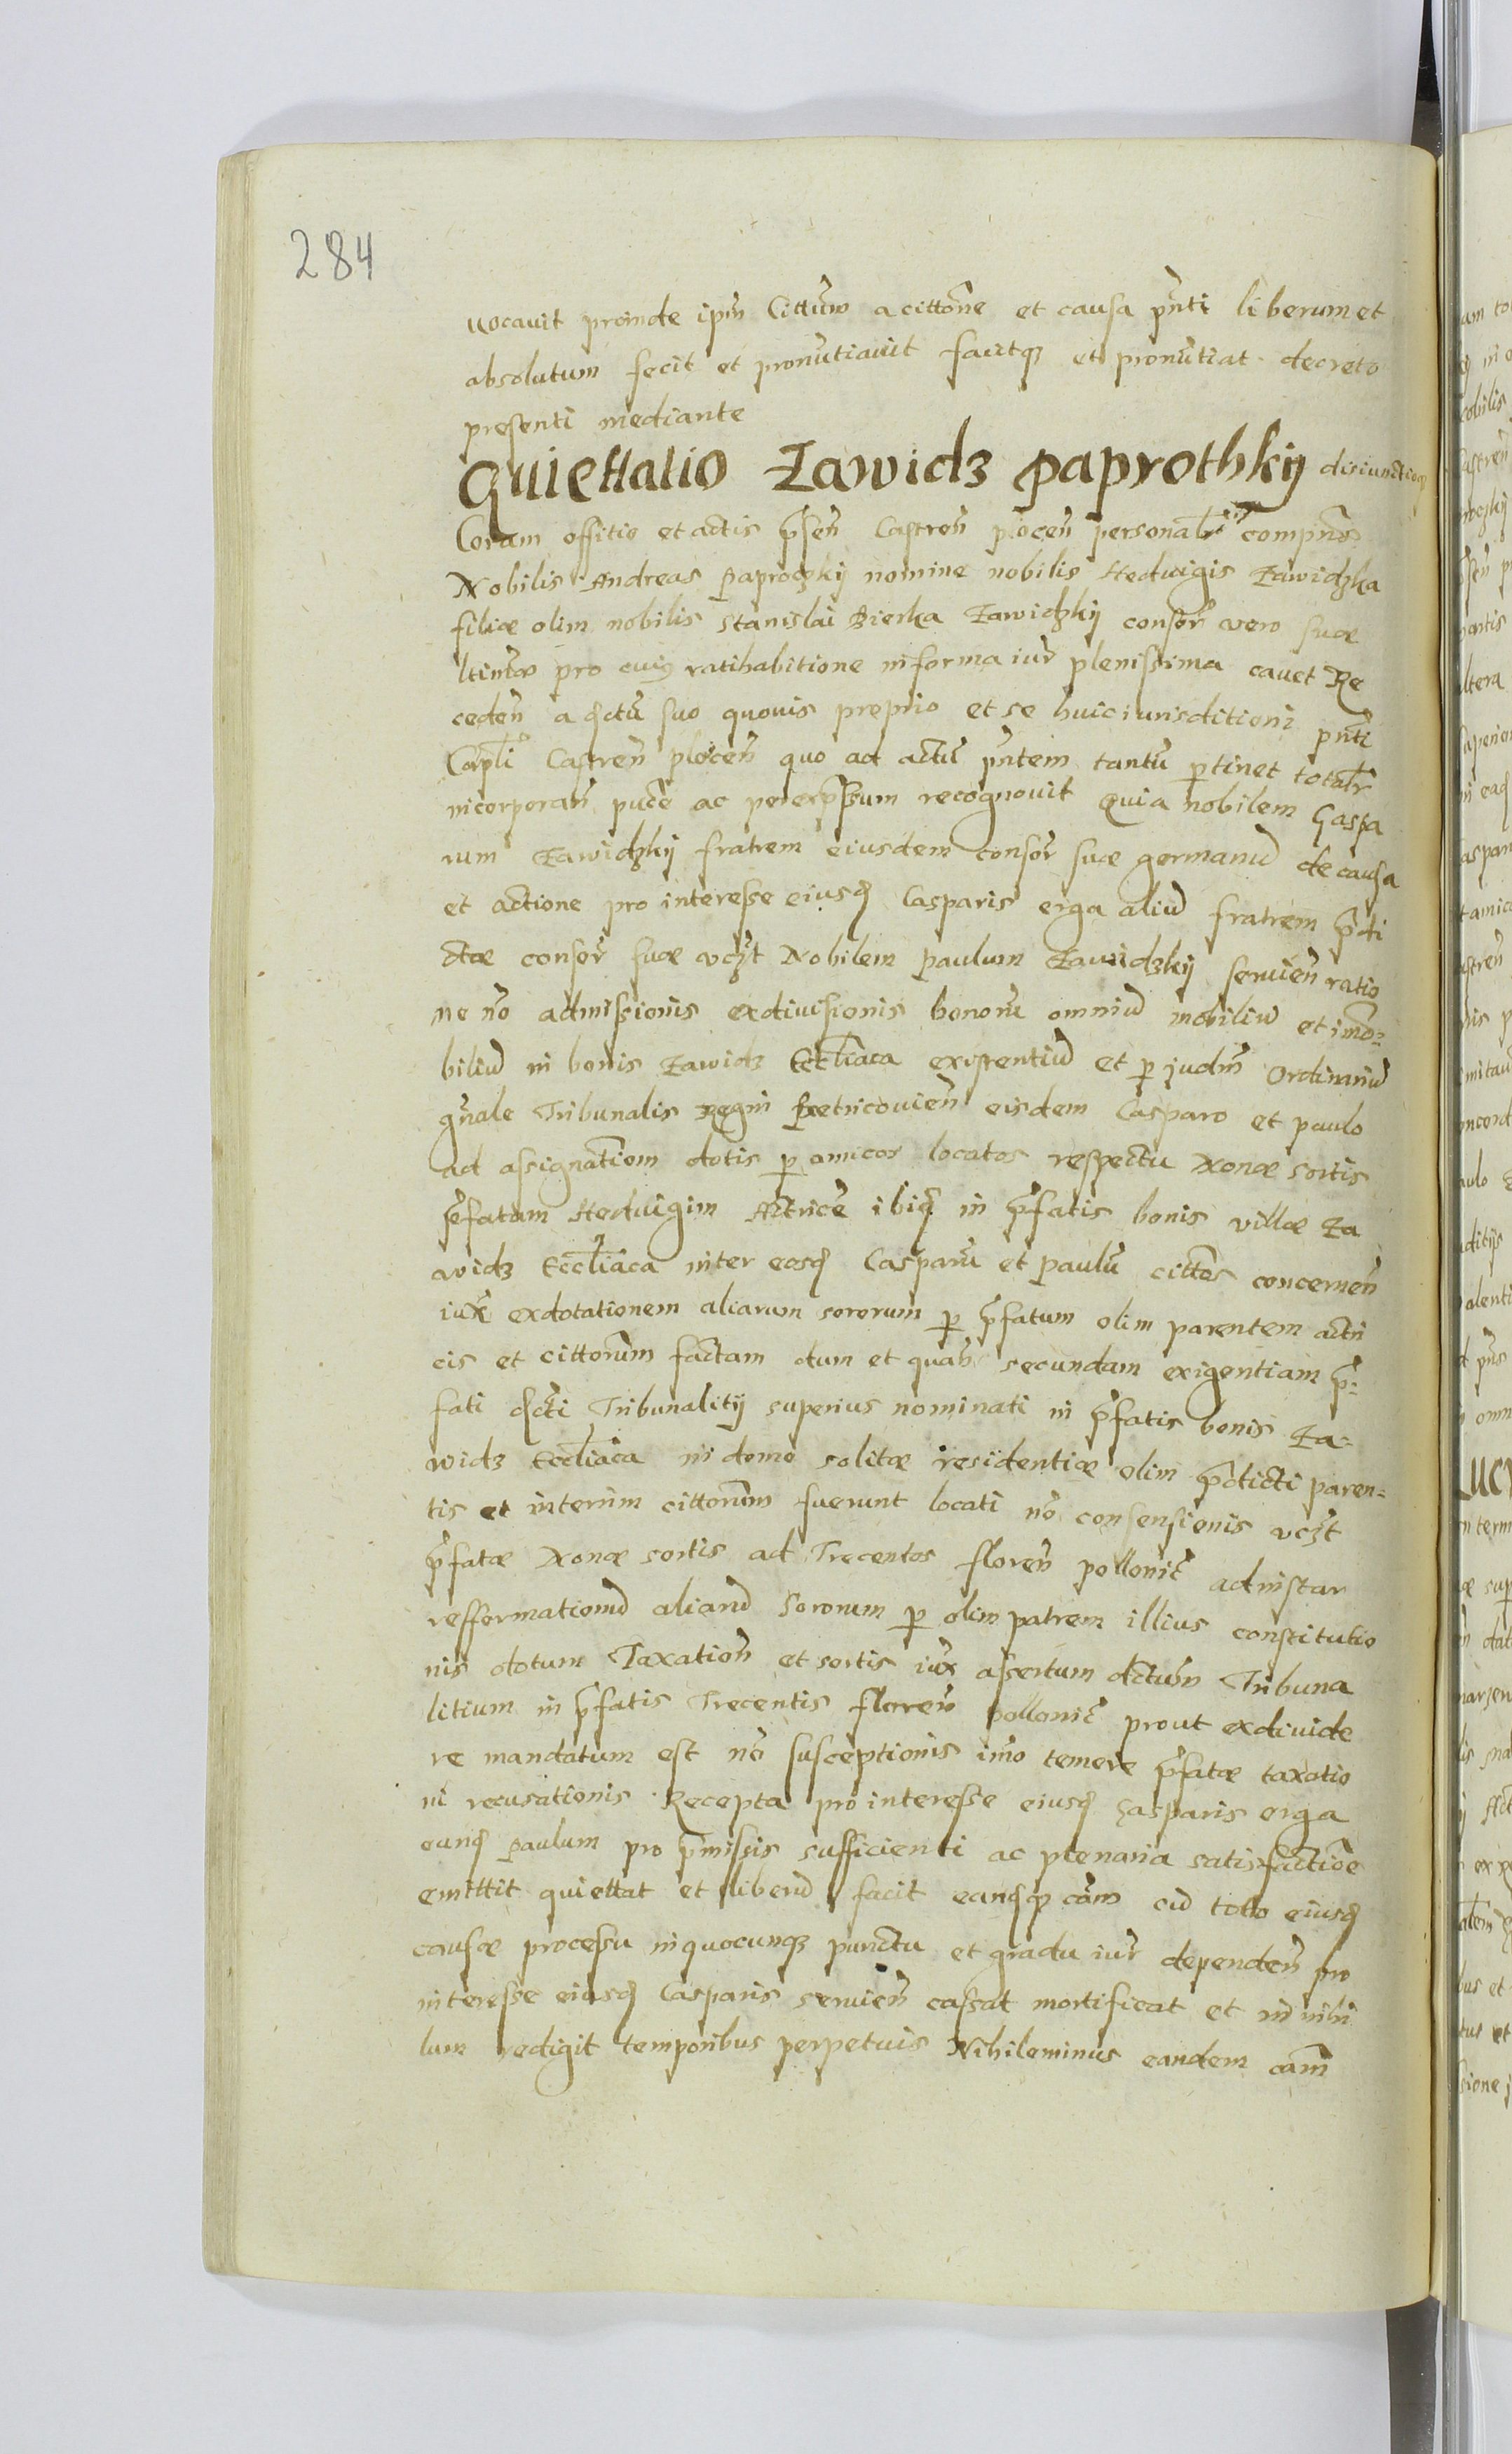 284
uocauit proinde ipm̃ Cittũm a cittõne et causa pñti liberum et
absolutum fecit et pronũtiauit facitq3 et pronũtiat decreto
presenti mediante
Quiettatio Zawidz paprothkij
Coram offitio et actis p̃sen̄ Castren̄ plocen̄ personalr̄ compñs
Nobilis Andreas Paproczkij nomine nobilis Heduigis Zawidzka
filiæ olim nobilis Stanislai Bierka Zawidzkij consor̃ vero suæ
ltimæ pro cui9 ratihabitione in forma iur̃ plenissima cauet Re
ceden̄ a dictũ suo quouis proprio et se huic iurisditioni pñti
Castren̄ plocen̄ quo ad actũ p̃ntem tantũ ptinet totalr̃
incorporan̄ puce ac per expssum recognouit Quia nobilem Gaspa
rum Zawidzkij fratrem eiusdem consor̃ suæ germanũ de causa
et actione pro interesse eiusd Casparis erga aliũ fratrem p̃di
ctæ consor̃ suæ vcz̃t Nobilem Paulum Zawidzkij seruien̄ ratio
ne nõ admissionis exdiuisionis bonorũ omniũ mobiliũ et imõ=
biliũ in bonis Zawidz Eccl̃iaca existentiũ et p judm̃ Ordinariũ
gñale Tribunalis Regni Petricouien̄ eisdem Casparo et Paulo
ad assignatiom dotis p amicos locatos respectu Xonæ sortis
p̃fatam Heduigim Actricẽ ibiq̃ in p̃fatis bonis villæ Za
widz Eccl̃iaca inter eosd Casparũ et Paulũ cittos concernen̄
iux̃ exdotationem aliarum sororum p p̃fatum olim parentem actri
cis et cittorum factam dum et quan̄ secundam exigentiam p̃=
fati dcti Tribunalitij superius nominati in p̃fatis bonis Za=
widz Eccl̃iaca in domo solitæ residentiæ olim p̃dicti paren=
tis et interim cittorum fuerunt locati nõ consensionis vcz̃t
p̃fatæ Xonæ sortis ad Trecentos floren̄ pollonic̃ ad instar
refformationũ aliarũ Sororum p olim patrem illius constitutio
nis dotum Taxation̄ et sortis iux̃ assertum dctum̃ Tribuna
litium in p̃fatis Trecentis floren̄ pollonic̃ prout exdiuide
re mandatum est nõ susceptionis imo temere p̃fatæ taxatio
ni recusationis Recepta pro interesse eiusd Gasparis erga
eund Paulum pro p̃missis sufficienti ac plenaria satisfactiõe
emittit quiettat et liberũ facit eandq3 cãm cũ toto eiusd
causæ processu in quocunq3 punctu et gradu iur̃ dependen̄ pro
interesse eiusd Casparis seruien̄ cassat mortificat et in nihi
lum redigit temporibus perpetuis Nihileminus eandem cam̃